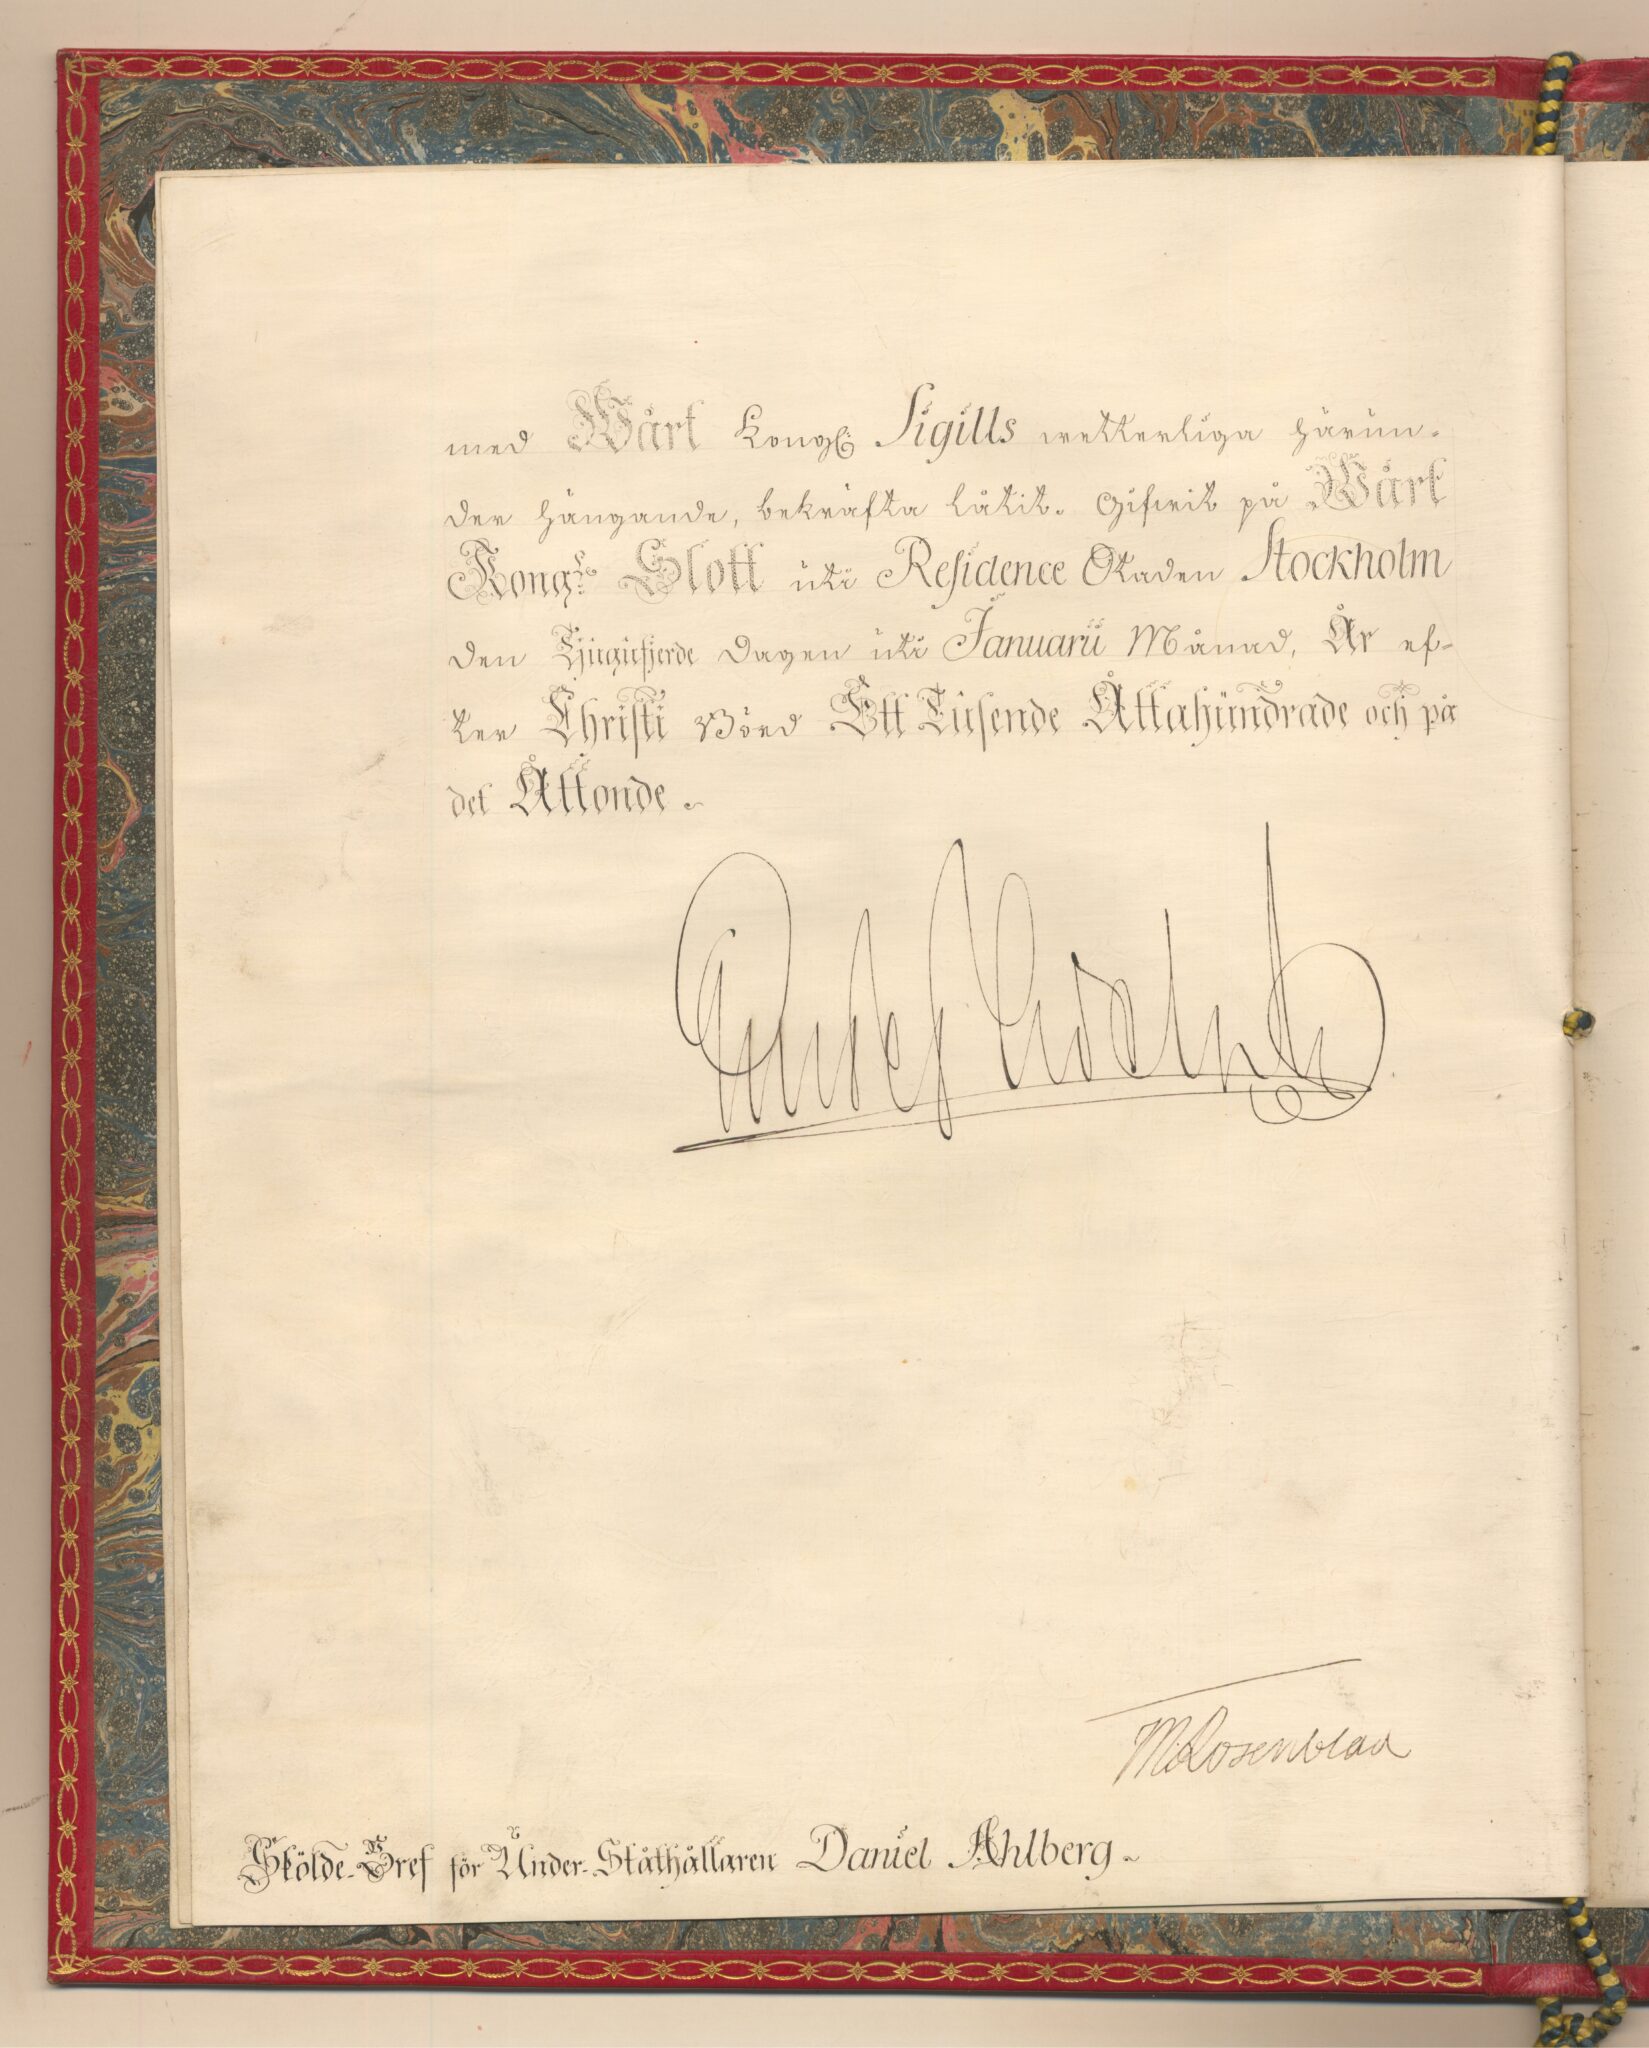 med Wårt Kongl: Sigills wetterliga härun-
der hängande, bekräfta låtit. Gifwit på Wårt
Kongl: Slott uti Residence Staden Stockholm
den Tjugufjerde dagen uti Januarii Månad, År ef-
ter Christi Börd Ett Tusende Åttahundrade och på
det Åttonde.
Gustaf Adolph
M Rosenblad
Skölde-Bref för Under-Ståthållaren Daniel Ahlberg.